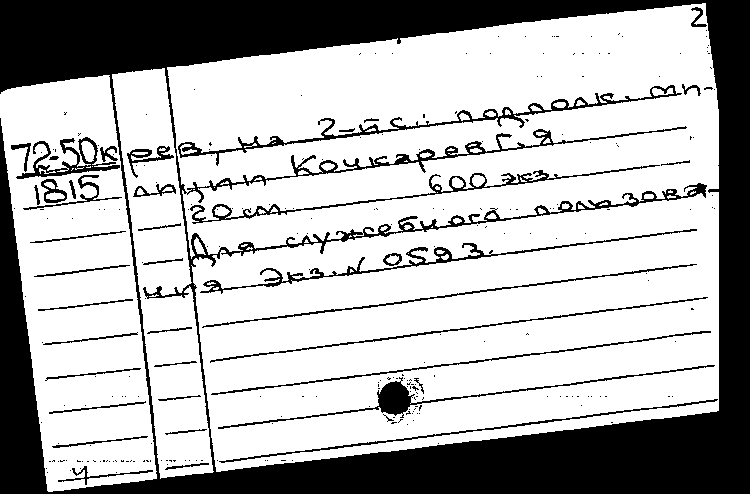 2
72-50к рев; на 2-й с.: подполк. ми-
1815 лиции Кочкарев Г.Я.
20 см. 600 экз.
Для служебного пользова-
ния Экз. № 0593.
ч